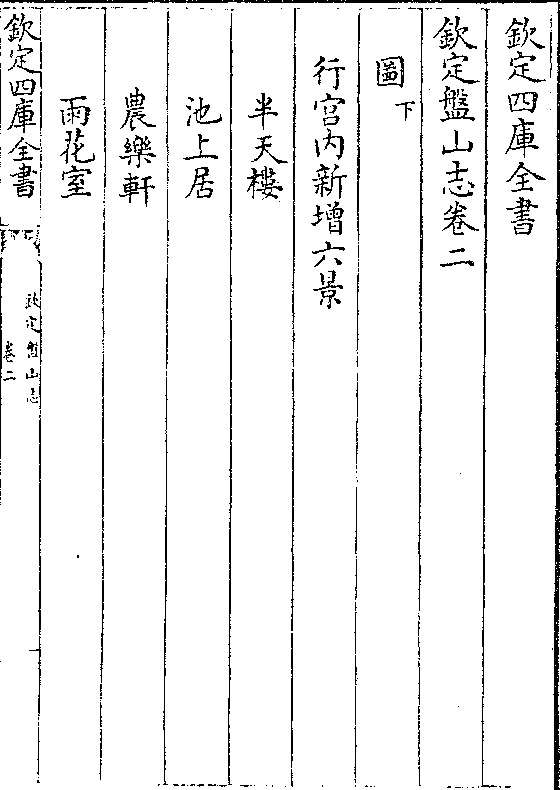 欽定四庫全書
欽定盤山志卷二
圖下
行宫内新增六景
半天樓
池上居
農樂軒
雨花室
欽定四庫全書
欽定盤山志
卷二